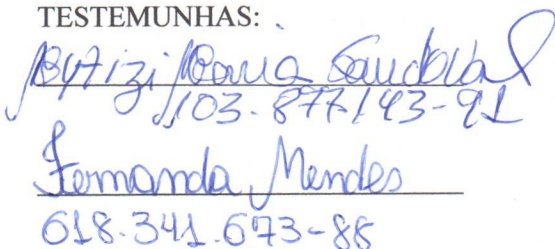 TESTEMUNHAS:
Maria Sandoval
103.877.143-91
Fernanda Mendes
618.341.673-88